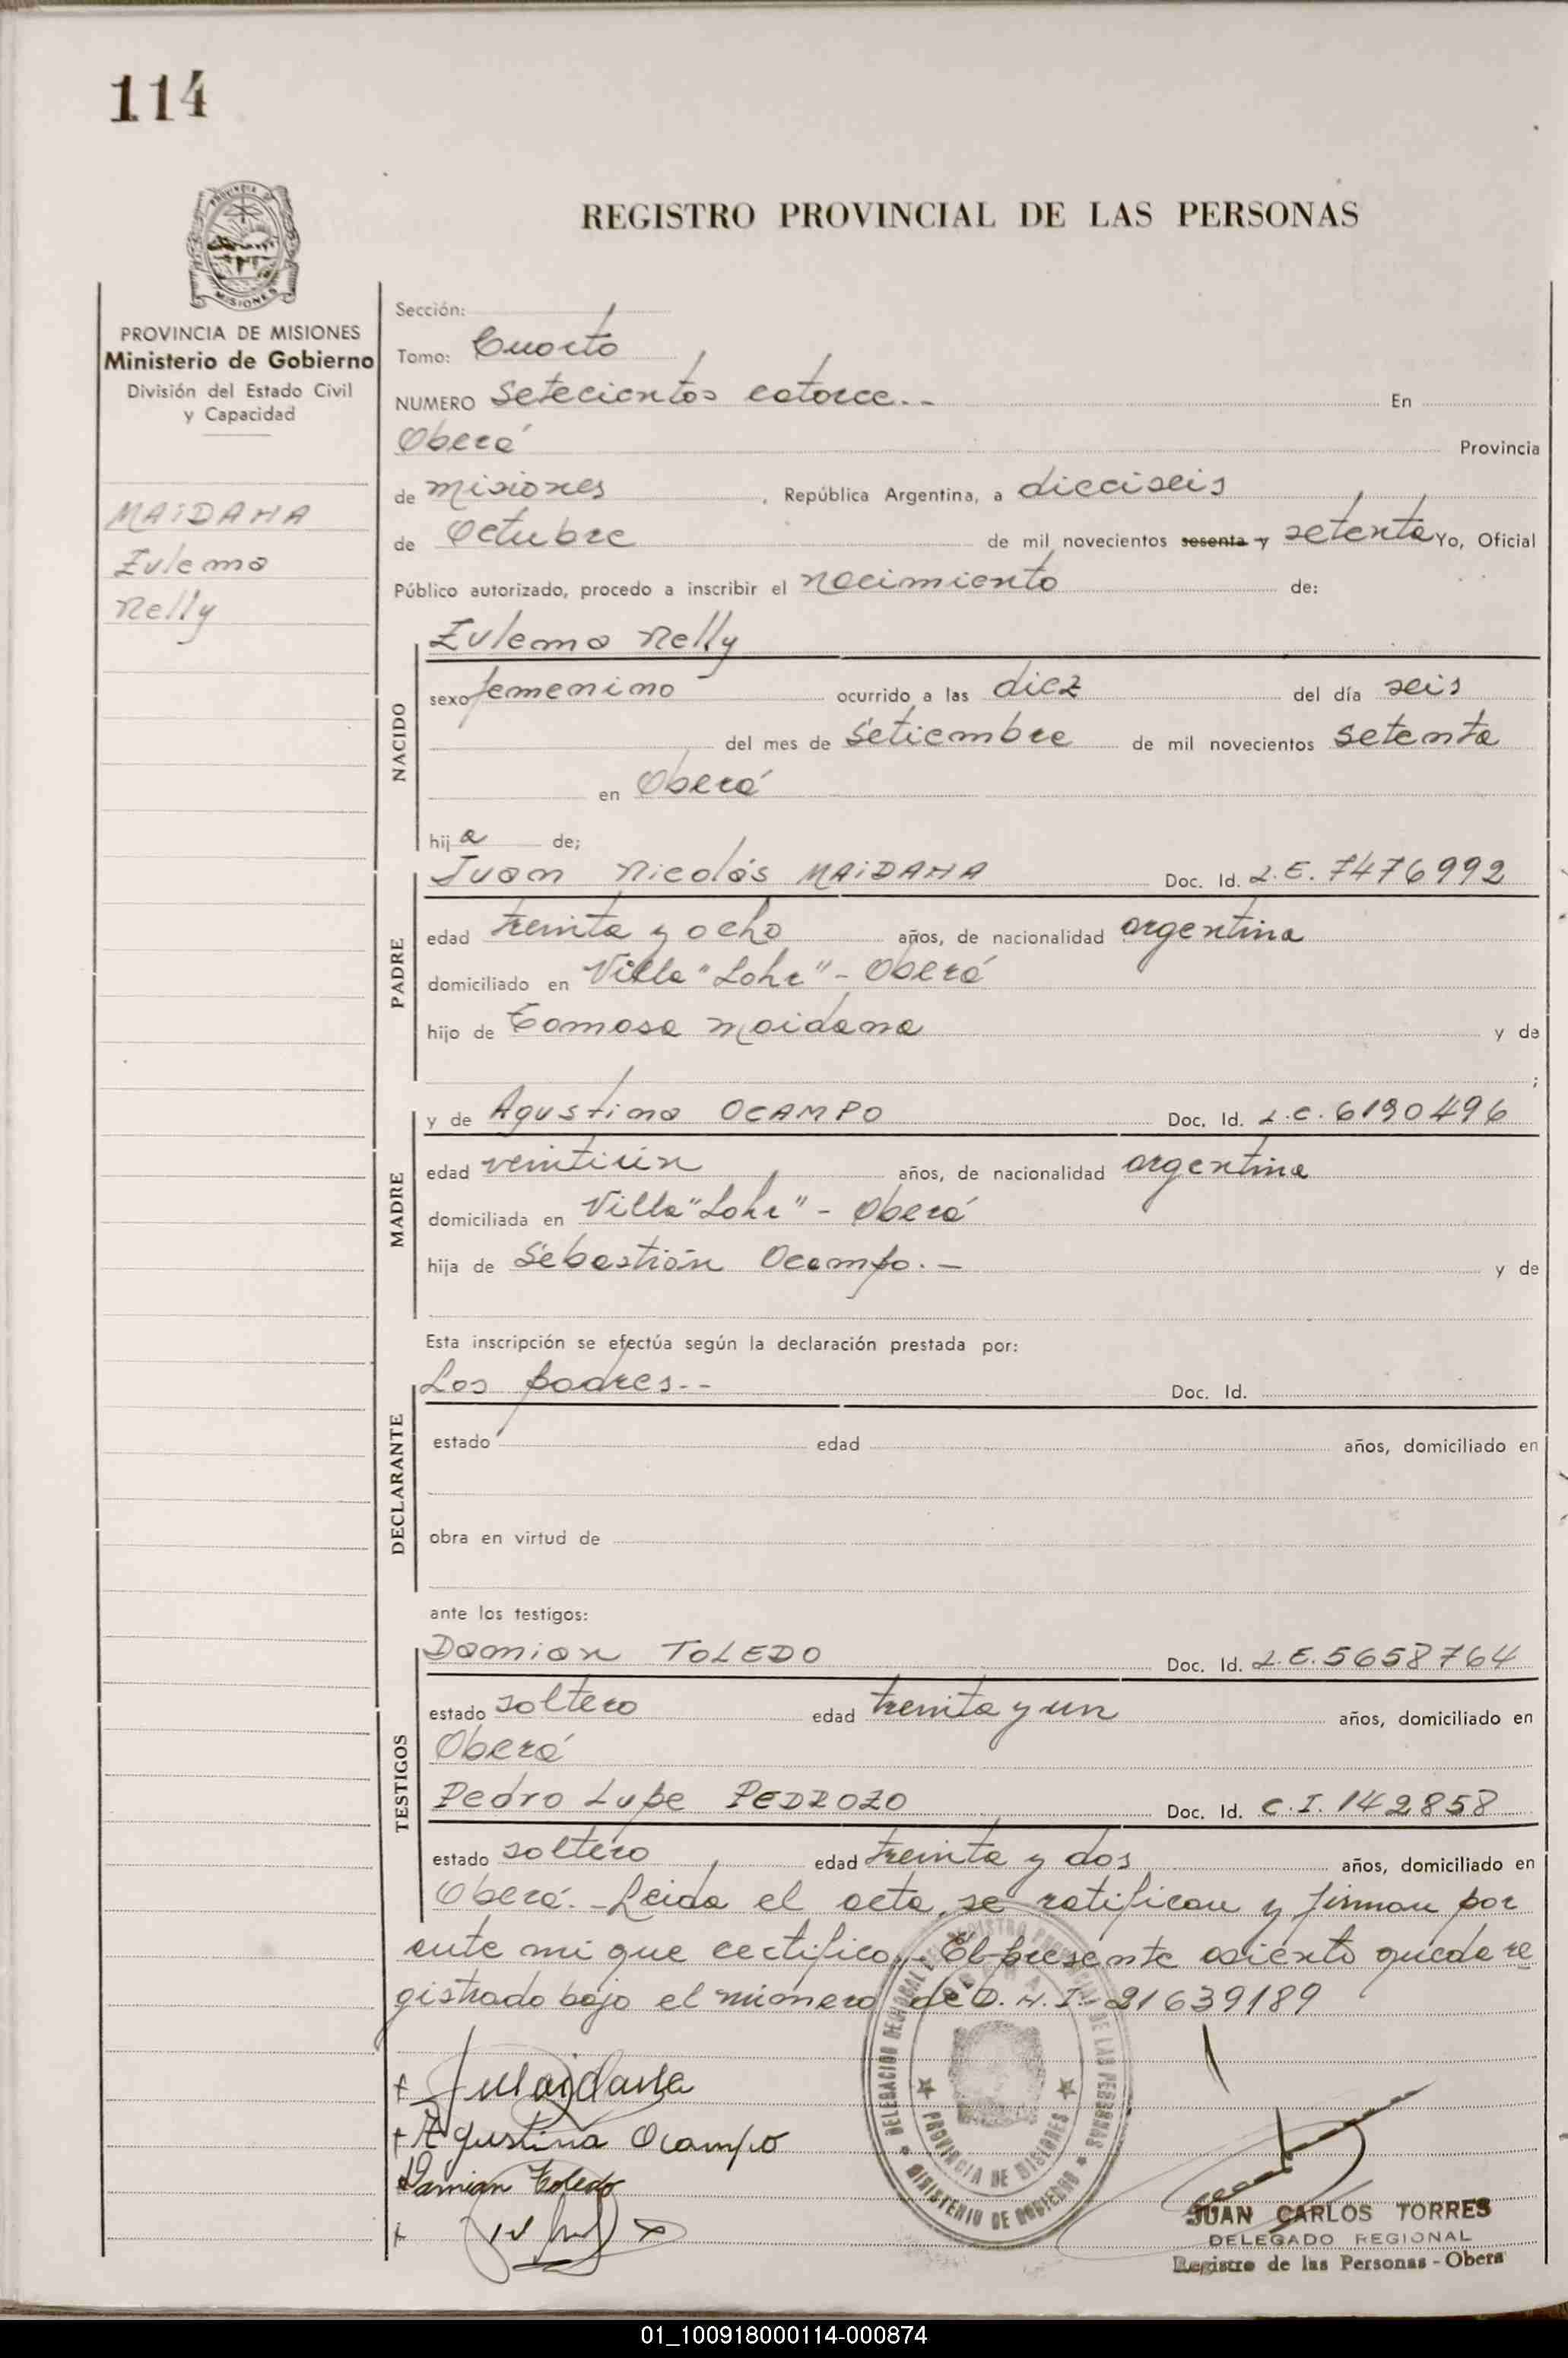 114
PROVINCIA DE
MISIONES
REGISTRO PROVINCIAL DE LAS PERSONAS
PROVINCIA DE MISIONES
Ministerio de Gobierno
División del Estado Civil
y Capacidad
MAIDANA
Zulema
Nelly
Sección:
Tomo: Cuarto
NUMERO Setecientos catorce.- En
Oberá Provincia
de Misiones, República Argentina, a dieciseis
de Octubre de mil novecientos sesenta y setenta Yo, Oficial
Público autorizado, procedo a inscribir el nacimiento de:
NACIDO
Zulema Nelly
sexo femenino ocurrido a las diez del día seis
del mes de Setiembre de mil novecientos setenta
en Oberá
hija de;
PADRE
Juan Nicolás MAIDANA Doc. Id. L.E. 7476992
edad treinta y ocho años, de nacionalidad argentina
domiciliado en Villa "Lohr" - Oberá
hijo de Tomasa Maidana y de
;
MADRE
y de Agustina OCAMPO Doc. Id. L.C. 6190496
edad veintiún años, de nacionalidad argentina
domiciliada en Villa "Lohr" - Oberá
hija de Sebastián Ocampo.- y de
Esta inscripción se efectúa según la declaración prestada por:
DECLARANTE
Los padres.- Doc. Id.
estado edad años, domiciliado en
obra en virtud de
ante los testigos:
TESTIGOS
Damian TOLEDO Doc. Id. L.E. 5658764
estado soltero edad treinta y un años, domiciliado en
Oberá
Pedro Lupe PEDROZO Doc. Id. C.I. 142858
estado soltero edad treinta y dos años, domiciliado en
Oberá.- Leida el acta, se ratifican y firman por
ante mi que certifico.- El presente asiento queda re
gistrado bajo el número de D.N.I.- 21639189
+ JMaidana
+ Agustina Ocampo
Damian Toledo
+
DELEGACION REGIONAL DEL REGISTRO PROVINCIAL DE LAS PERSONAS
PROVINCIA DE MISIONES
MINISTERIO DE GOBIERNO
JUAN CARLOS TORRES
DELEGADO REGIONAL
Registro de las Personas - Obera
01_100918000114-000874